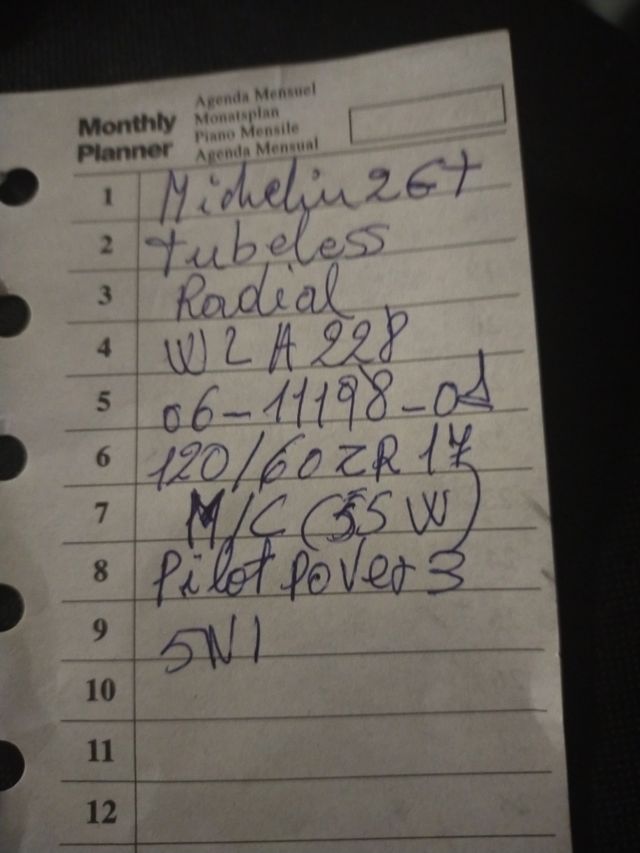 Monthly Planner
Agenda Mensuel
Monatsplan
Piano Mensile
Agenda Mensual
1 Michelin 26+
2 tubeless
3 Radial
4 W2 A 228
5 06-11198-01
6 120/60 ZR 17
7 M/C (55 W)
8 Pilot Power 3
9 5N1
10
11
12